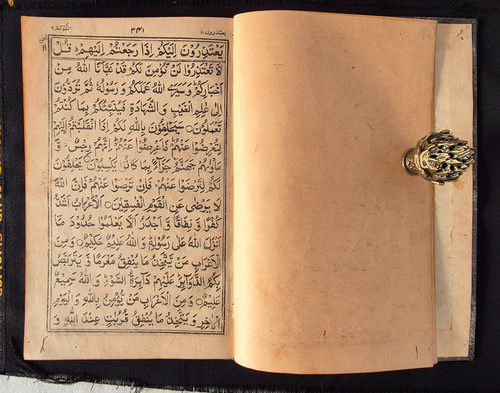 يعتذرون ۱۱
۲۴۱
التوبة ۹
يَعْتَذِرُوْنَ اِلَيْكُمْ اِذَا رَجَعْتُمْ اِلَيْهِمْ ۭ قُلْ
لَّا تَعْتَذِرُوْا لَنْ نُّؤْمِنَ لَكُمْ قَدْ نَبَّاَنَا اللّٰهُ مِنْ
اَخْبَارِكُمْ ۭ وَسَيَرَى اللّٰهُ عَمَلَكُمْ وَ رَسُوْلُهٗ ثُمَّ تُرَدُّوْنَ
اِلٰى عٰلِمِ الْغَيْبِ وَ الشَّهَادَةِ فَيُنَبِّئُكُمْ بِمَا كُنْتُمْ
تَعْمَلُوْنَ ۝ سَيَحْلِفُوْنَ بِاللّٰهِ لَكُمْ اِذَا انْقَلَبْتُمْ اِلَيْهِمْ
لِتُعْرِضُوْا عَنْهُمْ ۭ فَاَعْرِضُوْا عَنْهُمْ ۭ اِنَّهُمْ رِجْسٌ ۡ وَّ
مَاْوٰىهُمْ جَهَنَّمُ ۚ جَزَآءًۢ بِمَا كَانُوْا يَكْسِبُوْنَ ۝ يَحْلِفُوْنَ
لَكُمْ لِتَرْضَوْا عَنْهُمْ ۚ فَاِنْ تَرْضَوْا عَنْهُمْ فَاِنَّ اللّٰهَ
لَا يَرْضٰى عَنِ الْقَوْمِ الْفٰسِقِيْنَ ۝ اَلْاَعْرَابُ اَشَدُّ
كُفْرًا وَّ نِفَاقًا وَّ اَجْدَرُ اَلَّا يَعْلَمُوْا حُدُوْدَ مَآ
اَنْزَلَ اللّٰهُ عَلٰى رَسُوْلِهٖ ۭ وَ اللّٰهُ عَلِيْمٌ حَكِيْمٌ ۝ وَ مِنَ
الْاَعْرَابِ مَنْ يَّتَّخِذُ مَا يُنْفِقُ مَغْرَمًا وَّ يَتَرَبَّصُ
بِكُمُ الدَّوَآئِرَ ۭ عَلَيْهِمْ دَآئِرَةُ السَّوْءِ ۭ وَ اللّٰهُ سَمِيْعٌ
عَلِيْمٌ ۝ وَ مِنَ الْاَعْرَابِ مَنْ يُّؤْمِنُ بِاللّٰهِ وَ الْيَوْمِ
الْاٰخِرِ وَ يَتَّخِذُ مَا يُنْفِقُ قُرُبٰتٍ عِنْدَ اللّٰهِ وَ